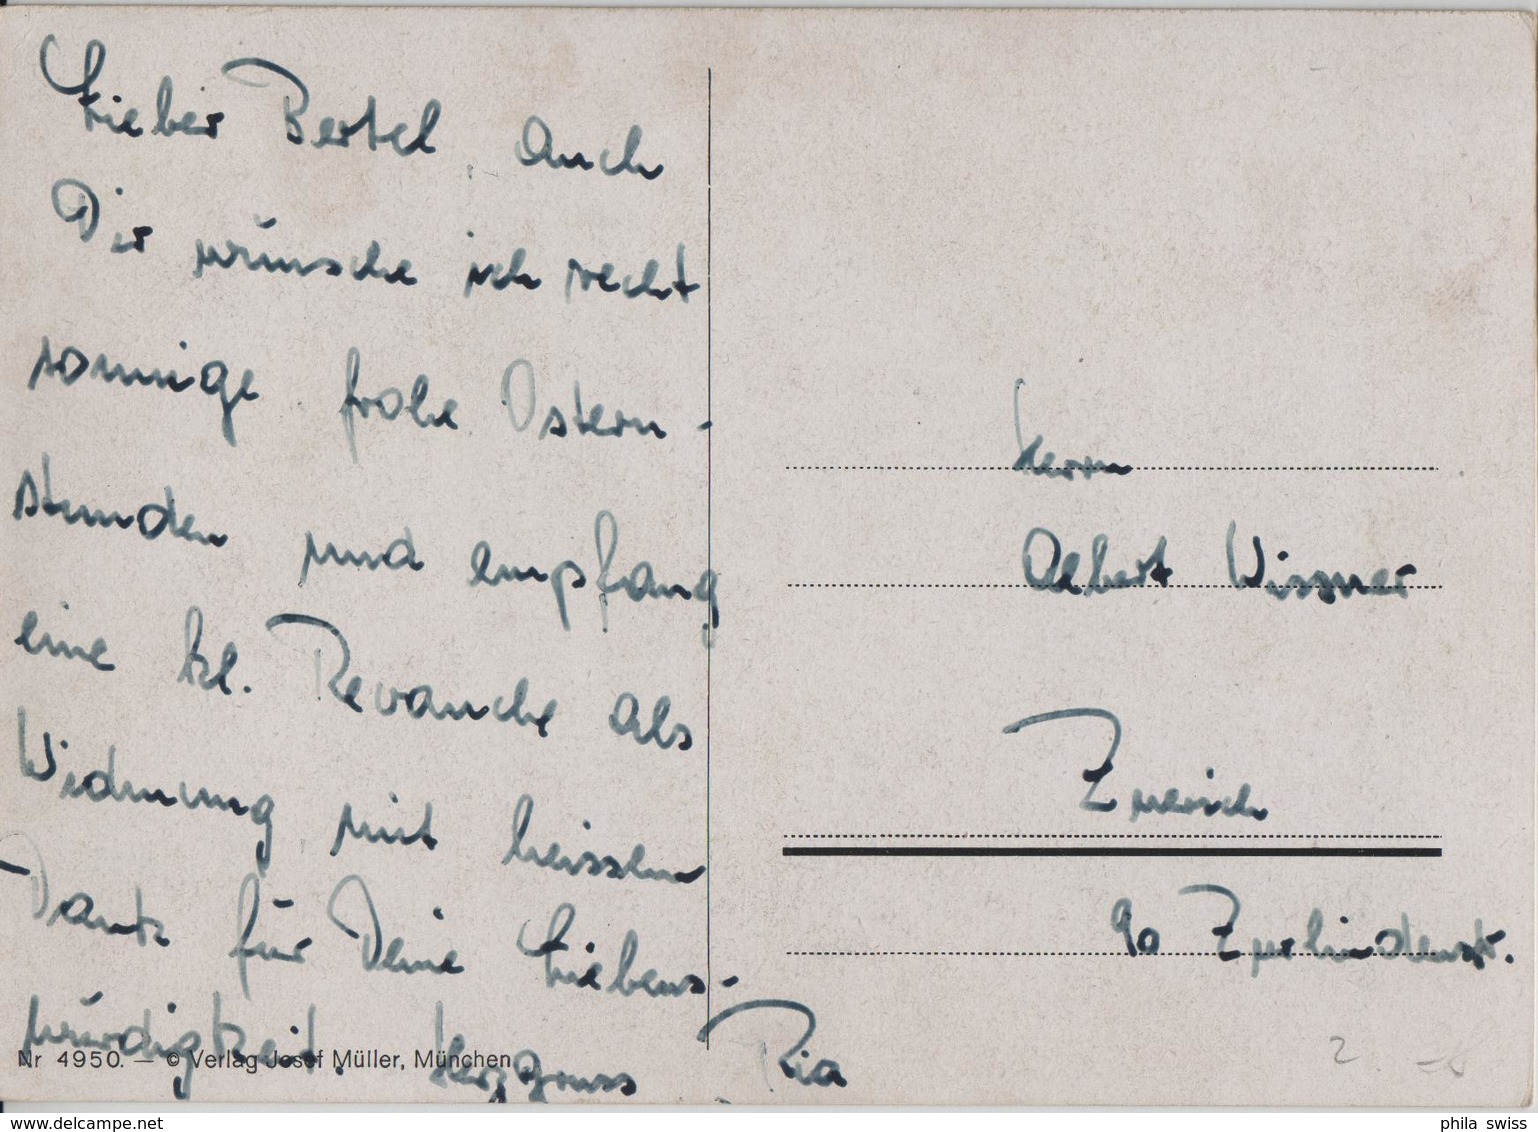 Lieber Bertel, Auch
Dir wünsche ich recht
sonnige frohe Ostern-
stunden und empfang
eine kl. Revanche als
Widmung mit heissem
Dank für Deine Liebens-
würdigkeit. Herzgruss Ria
Nr 4950. — © Verlag Josef Müller, München
Herrn
Albert Wissner
Zuerich
9a Zurlindenstr.
2
delcampe.net
phila swiss